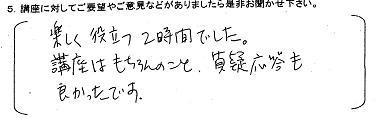 5. 講座に対してご要望やご意見などがありましたら是非お聞かせ下さい。
楽しく役立つ2時間でした。
講座はもちろんのこと、質疑応答も
良かったです。